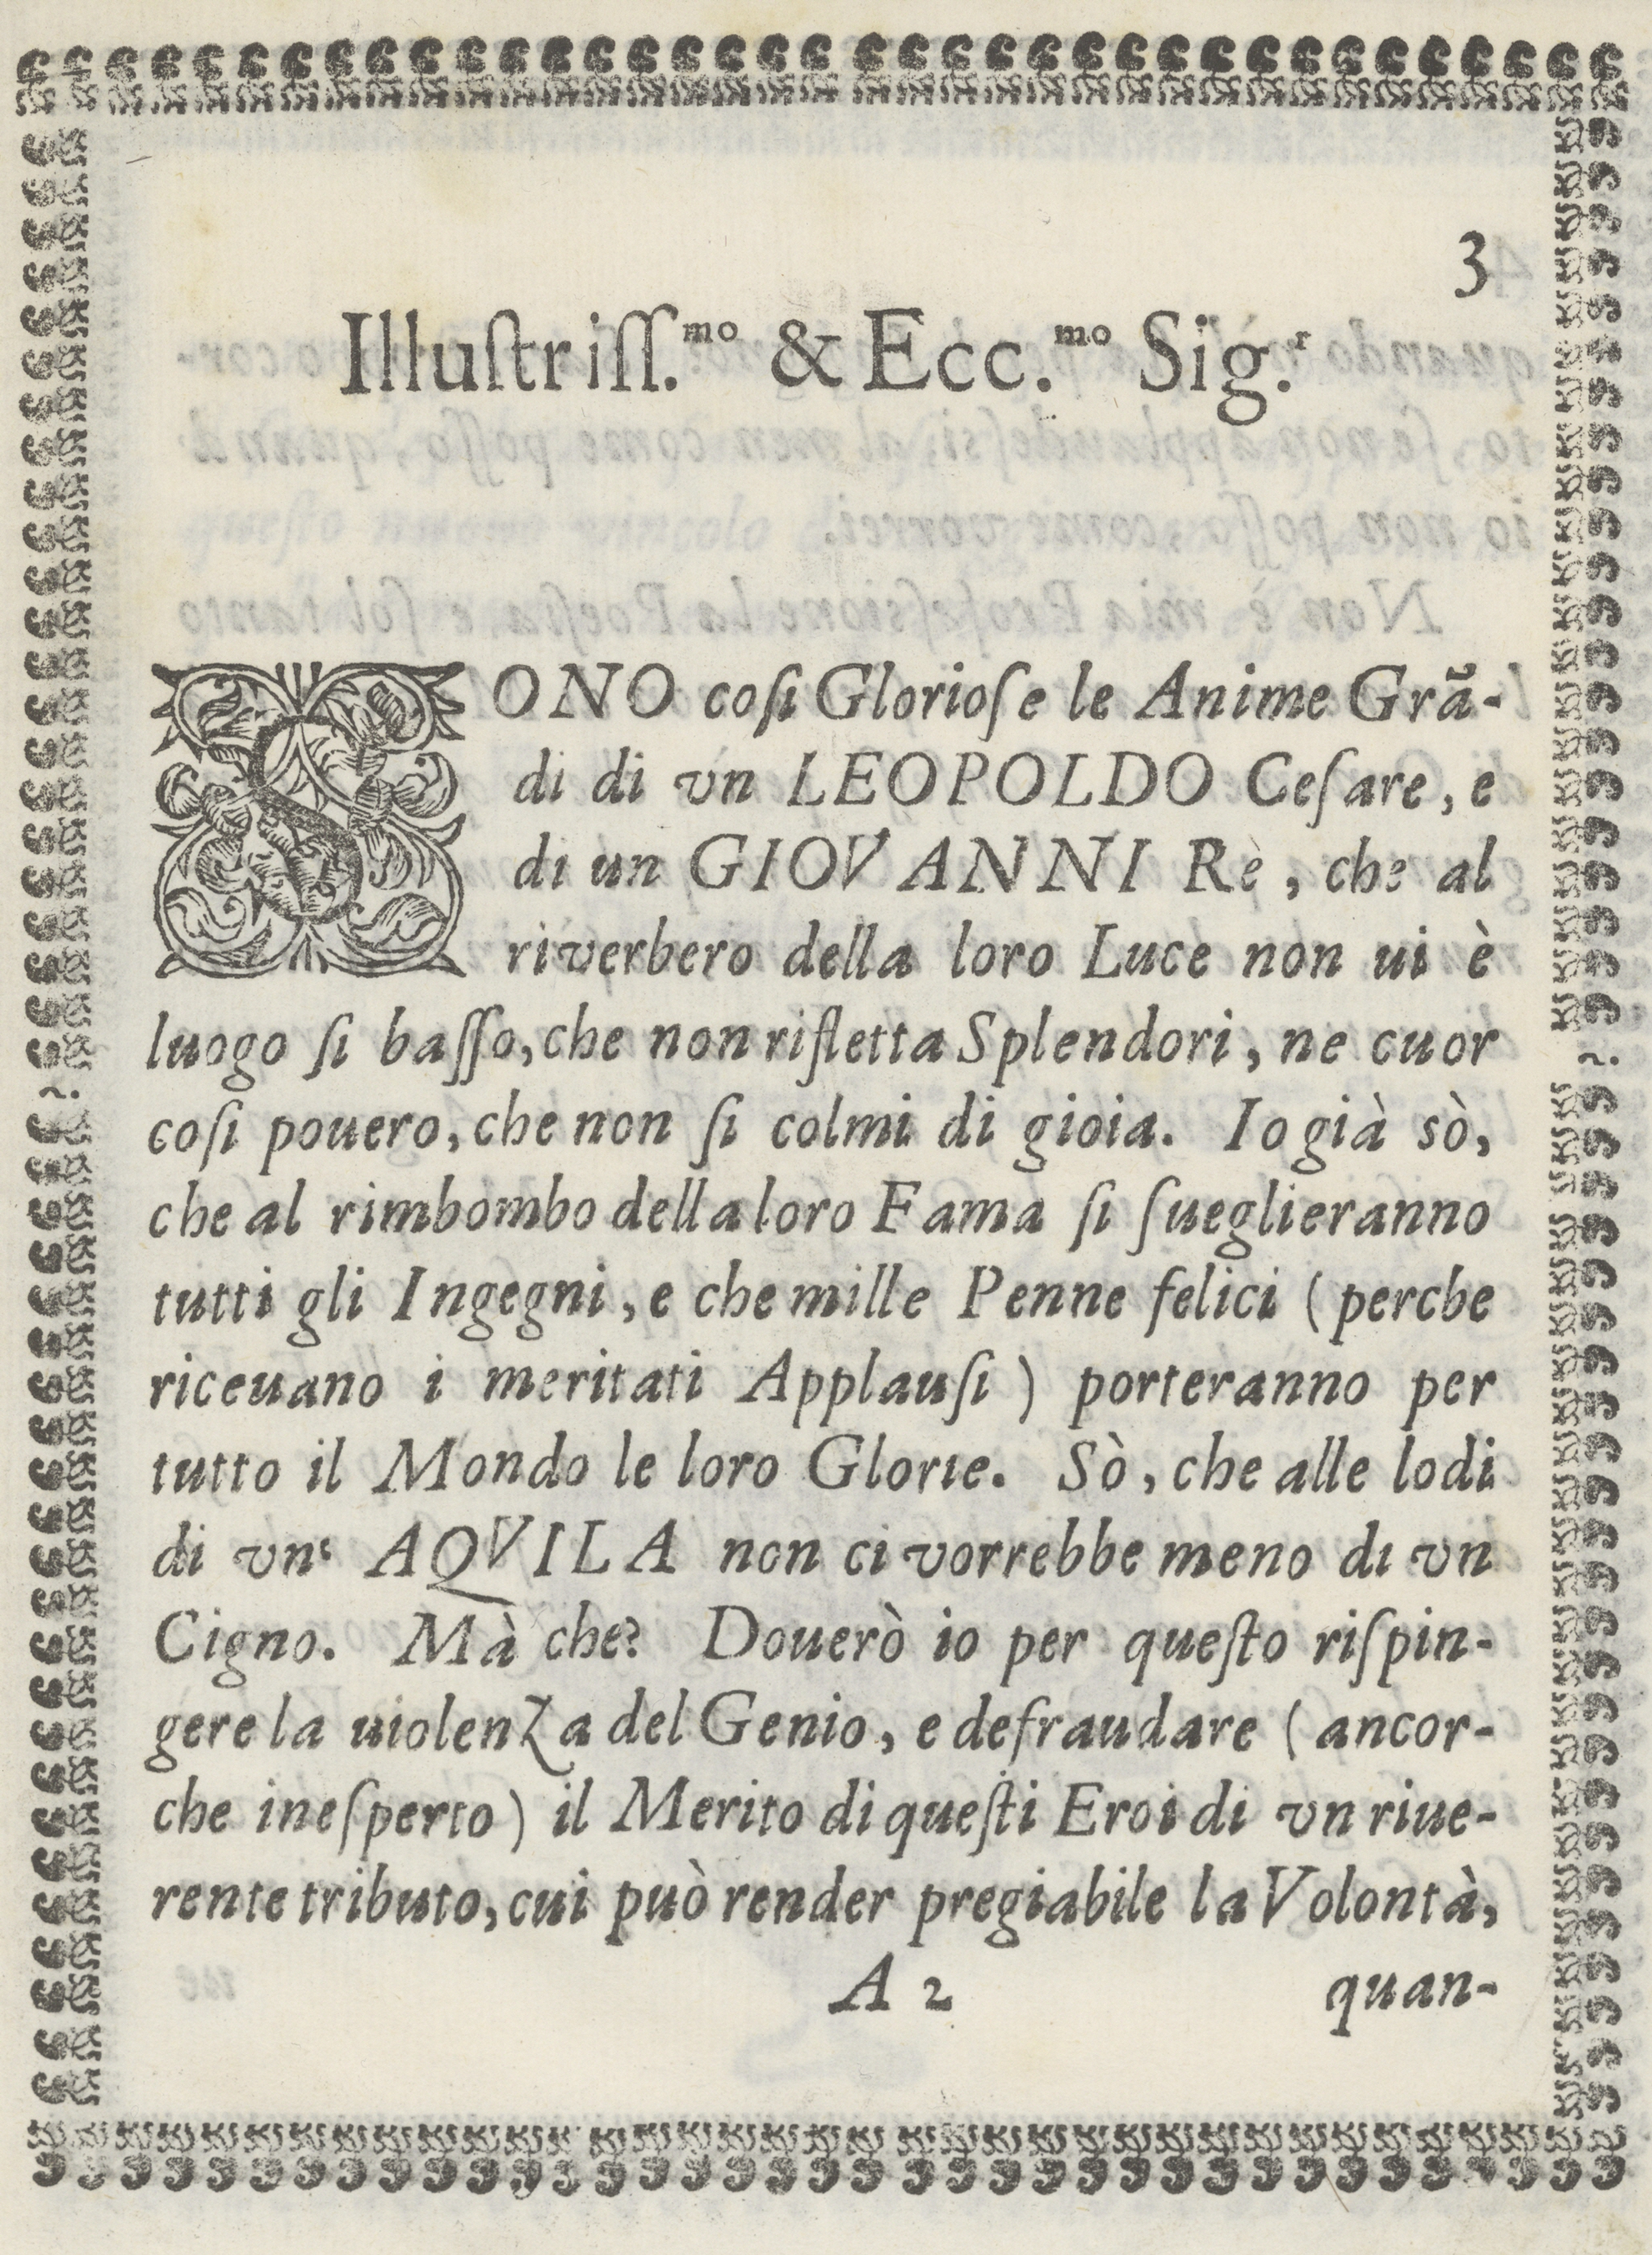 3
Illuſtriſſ.mo & Ecc.mo Sig.r
SONO coſi Glorioſe le Anime Grã-
di di vn LEOPOLDO Ceſare, e
di un GIOVANNI Rè, che al
riverbero della loro Luce non ui è
luogo ſi baſſo, che non rifletta Splendori, ne cuor
coſi pouero, che non ſi colmi di gioia. Io già sò,
che al rimbombo della loro Fama ſi ſueglieranno
tutti gli Ingegni, e che mille Penne felici (perche
riceuano i meritati Applauſi) porteranno per
tutto il Mondo le loro Glorie. Sò, che alle lodi
di vn‘ AQVILA non ci vorrebbe meno di vn
Cigno. Mà che? Douerò io per queſto riſpin-
gere la uiolenza del Genio, e defraudare (ancor-
che ineſperto) il Merito di queſti Eroi di vn riue-
rente tributo, cui può render pregiabile la Volontà,
A 2 quan-